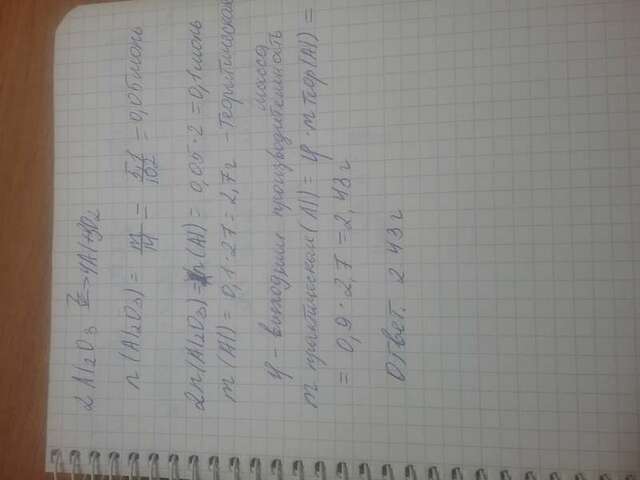 2 Al₂O₃ → 4Al + 3O₂
n (Al₂O₃) = m/M = 5,1/102 = 0,05 моль
2n (Al₂O₃) = n (Al) = 0,05 · 2 = 0,1 моль
m (Al) = 0,1 · 27 = 2,7 г - Теоритическая
масса
φ - производительность
m практической (Al) = φ · m теор (Al) =
= 0,9 · 2,7 = 2,43 г
Ответ: 2,43 г